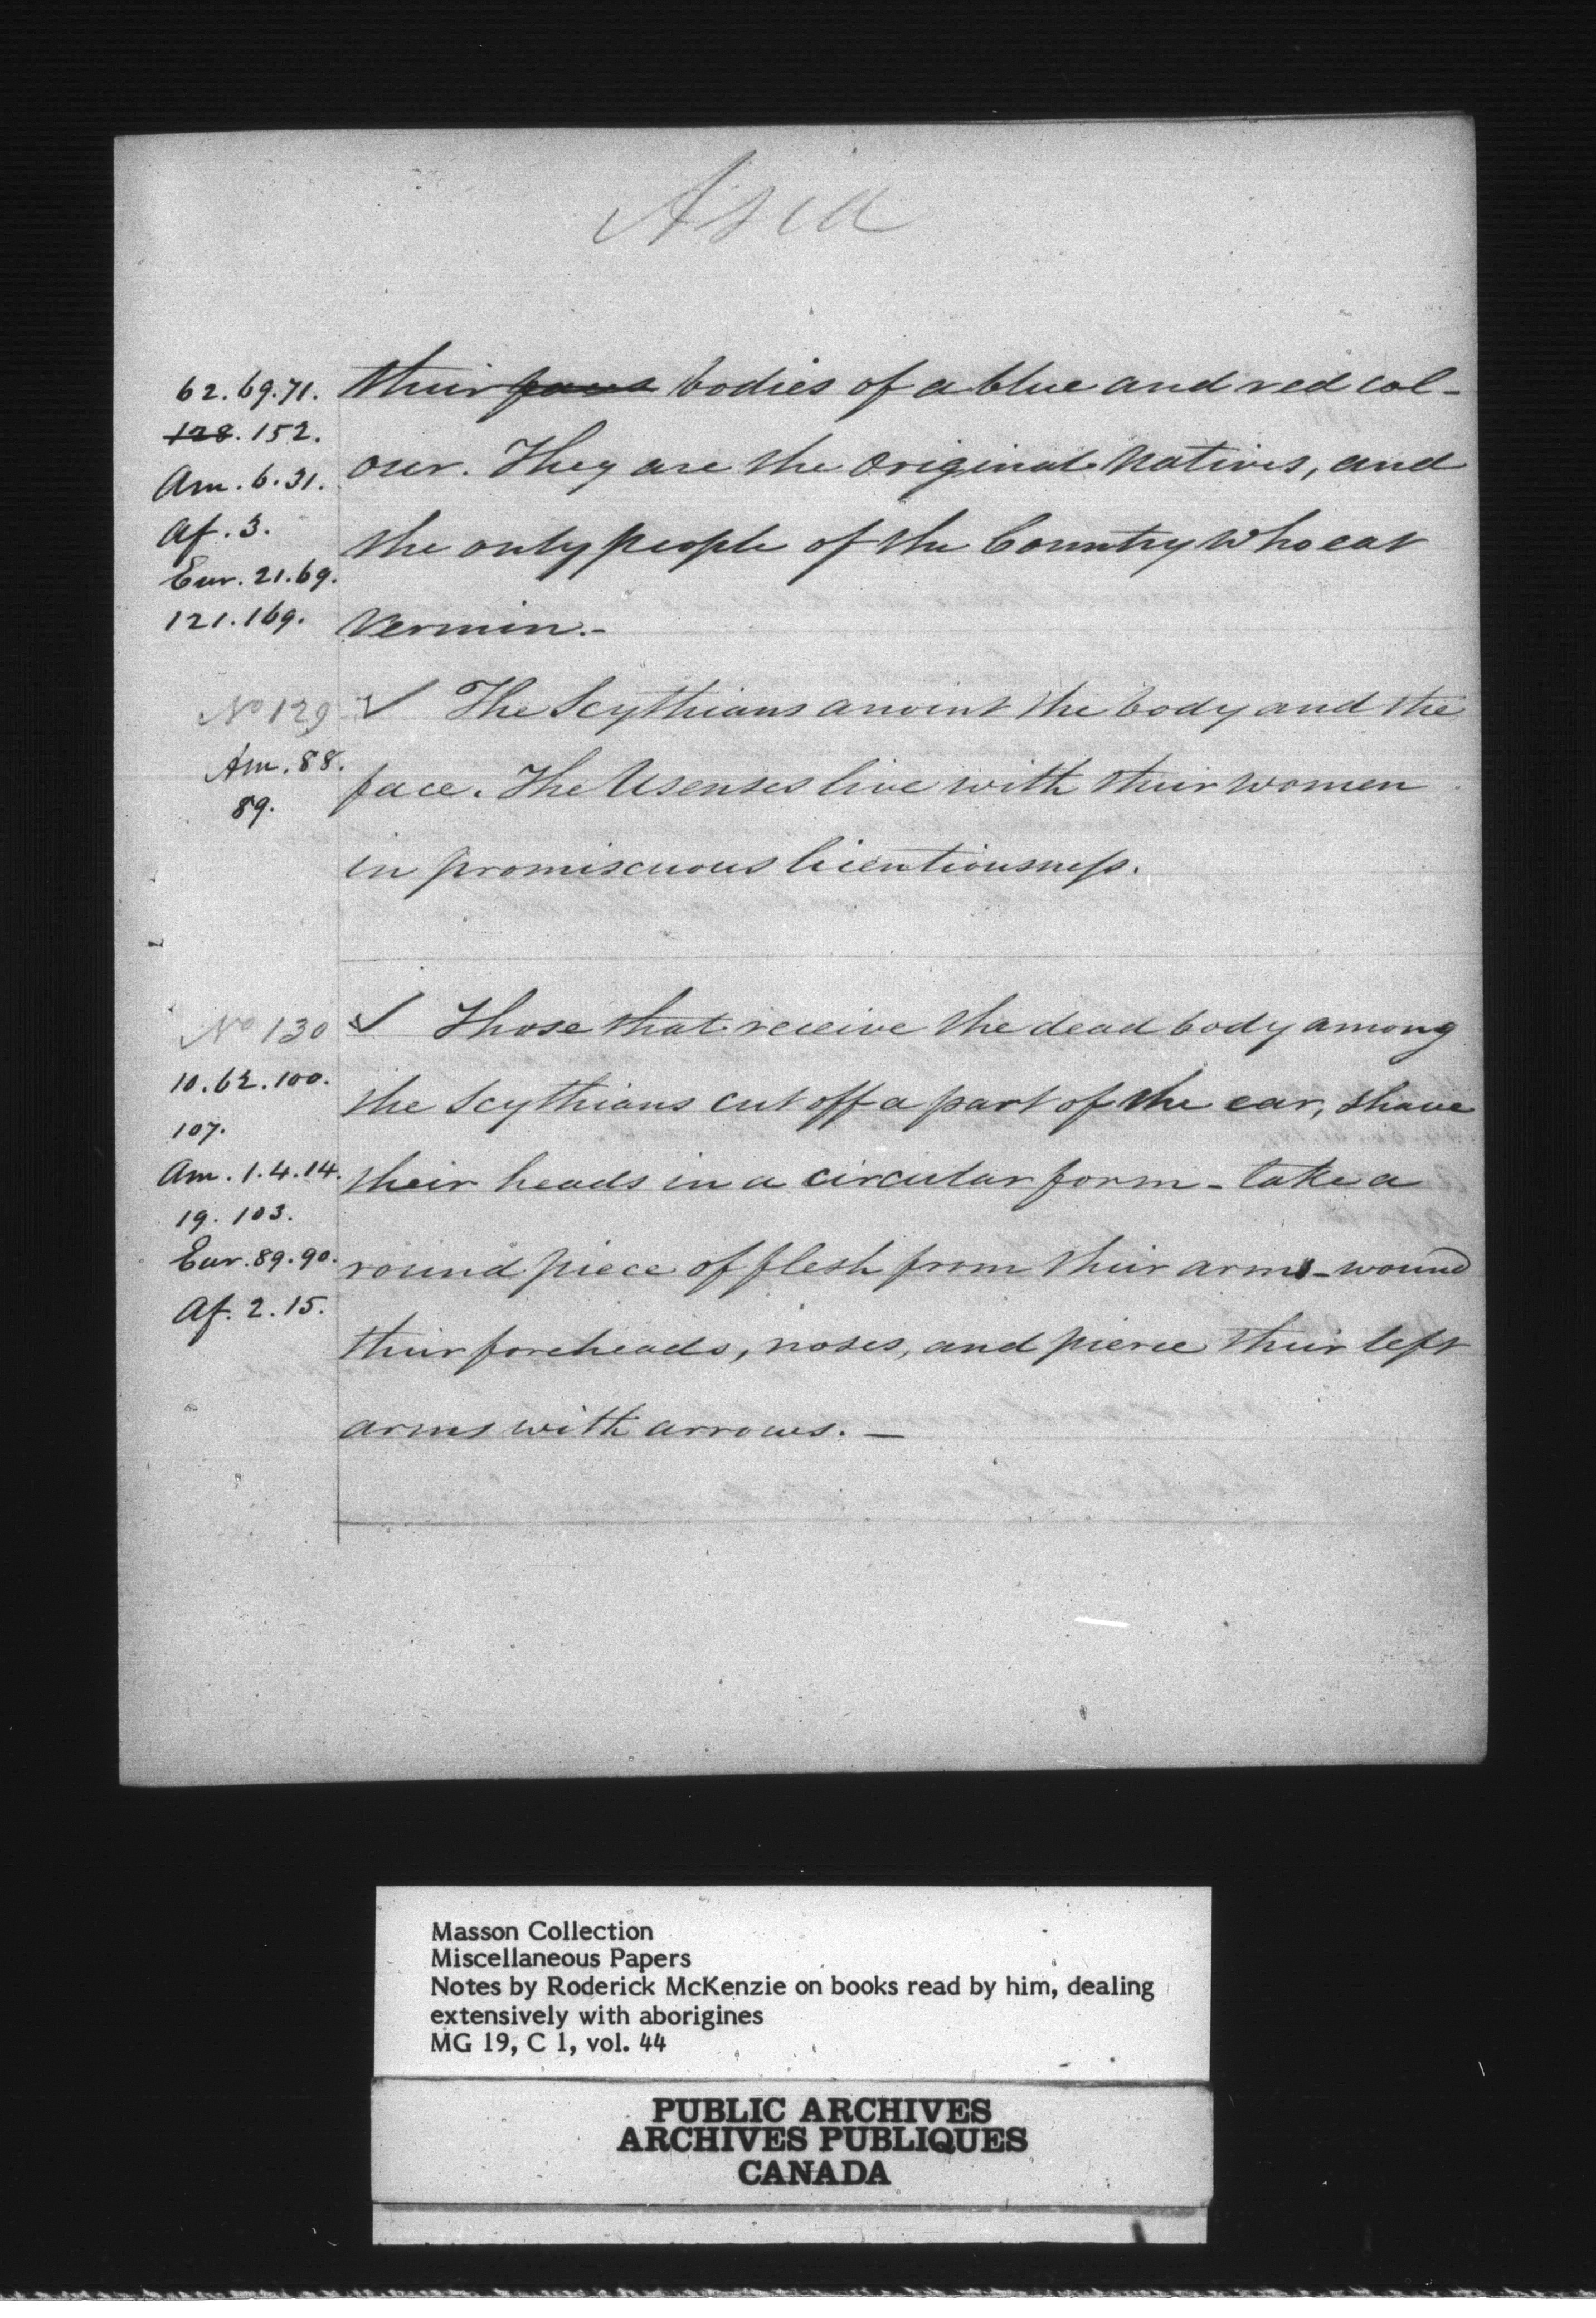 Asia
62. 69. 71.
128. 152.
Am. 6. 31.
Af. 3.
Eur. 21. 69.
121. 169.
their faces bodies of a blue and red col-
our. They are the original natives, and
the only people of the Country who eat
vermin.-
No 129
Am. 88.
89.
✓ The Scythians anoint the body and the
face. The Usenses live with their women
in promiscuous licentiousness.
No 130
10. 62. 100.
107.
Am. 1. 4. 14.
19. 103.
Eur. 89. 90.
Af. 2. 15.
✓ Those that receive the dead body among
the Scythians cut off a part of the ear, shave
their heads in a circular form - take a
round piece of flesh from their arms - wound
their foreheads, noses, and pierce their left
arms with arrows. -
Masson Collection
Miscellaneous Papers
Notes by Roderick McKenzie on books read by him, dealing
extensively with aborigines
MG 19, C 1, vol. 44
PUBLIC ARCHIVES
ARCHIVES PUBLIQUES
CANADA